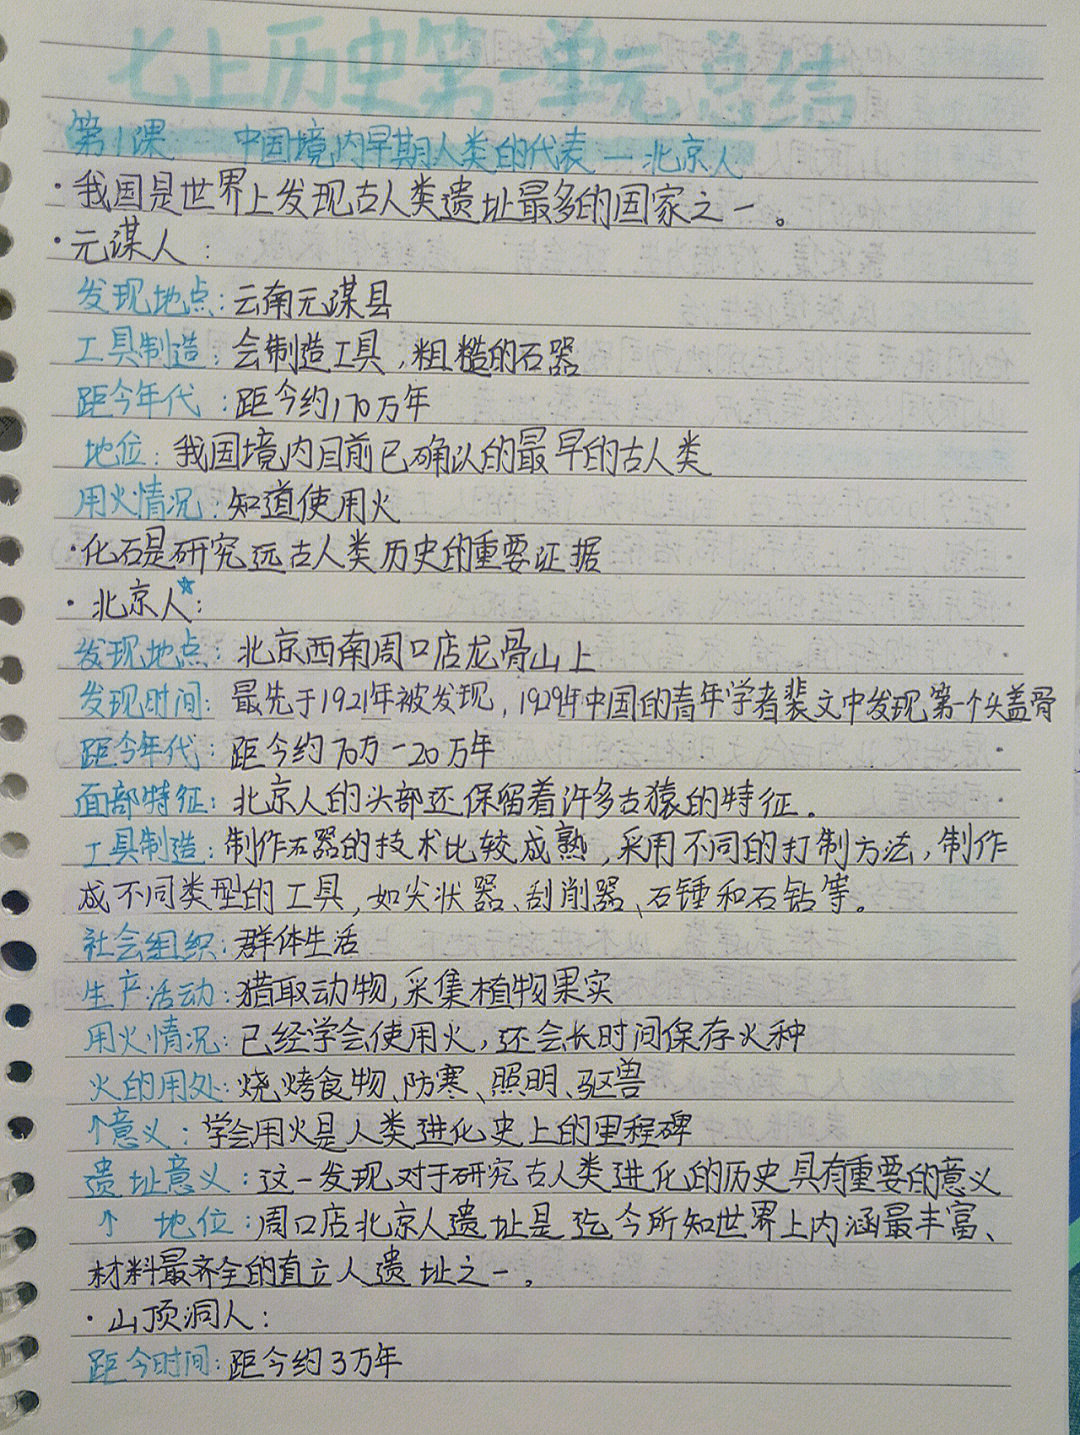 七上历史第一单元总结
第1课 中国境内早期人类的代表—北京人
·我国是世界上发现古人类遗址最多的国家之一。
·元谋人:
发现地点:云南元谋县
工具制造:会制造工具,粗糙的石器
距今年代:距今约170万年
地位:我国境内目前已确认的最早的古人类
用火情况:知道使用火
·化石是研究远古人类历史的重要证据
·北京人☆:
发现地点:北京西南周口店龙骨山上
发现时间:最先于1921年被发现,1929年中国的青年学者裴文中发现第一个头盖骨
距今年代:距今约70万-20万年
面部特征:北京人的头部还保留着许多古猿的特征.
工具制造:制作石器的技术比较成熟,采用不同的打制方法,制作
成不同类型的工具,如尖状器、刮削器、石锤和石钻等。
社会组织:群体生活
生产活动:猎取动物,采集植物果实
用火情况:已经学会使用火,还会长时间保存火种
火的用处:烧烤食物、防寒、照明、驱兽
↑意义:学会用火是人类进化史上的里程碑
遗址意义:这一发现对于研究古人类进化的历史具有重要的意义
↑ 地位:周口店北京人遗址是迄今所知世界上内涵最丰富、
材料最齐全的直立人遗址之一。
·山顶洞人:
距今时间:距今约3万年